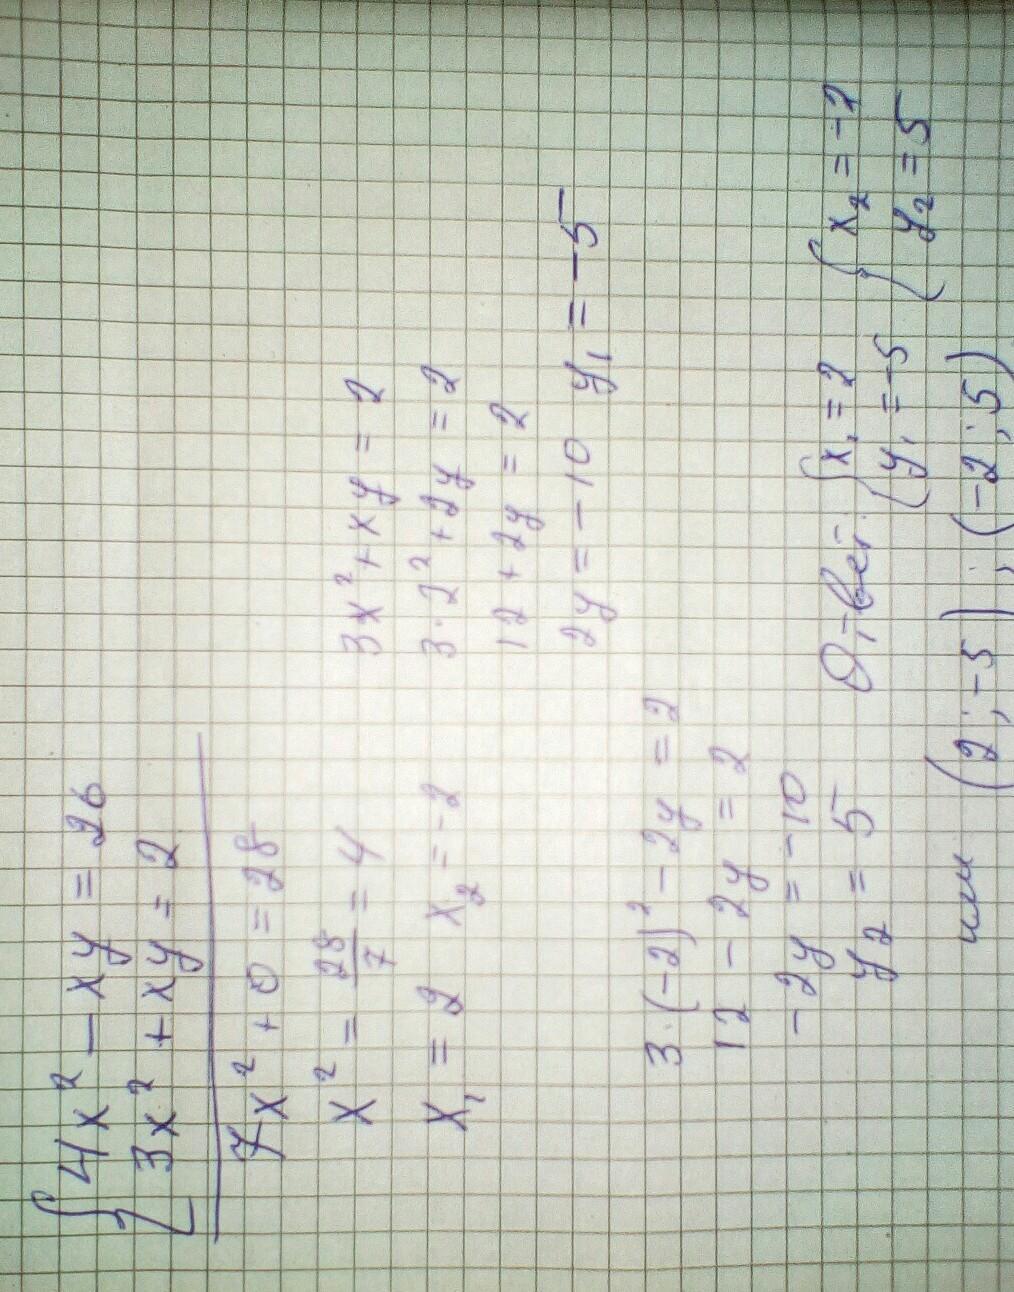 4x² - xy = 26
3x² + xy = 2
7x² + 0 = 28
x² = 28/7 = 4
x₁ = 2 x₂ = -2
3x² + xy = 2
3·2² + 2y = 2
12 + 2y = 2
2y = -10 y₁ = -5
3·(-2)² - 2y = 2
12 - 2y = 2
-2y = -10
y₂ = 5
Ответ: { x₁ = 2 { x₂ = -2
y₁ = -5 y₂ = 5
или (2; -5); (-2; 5)